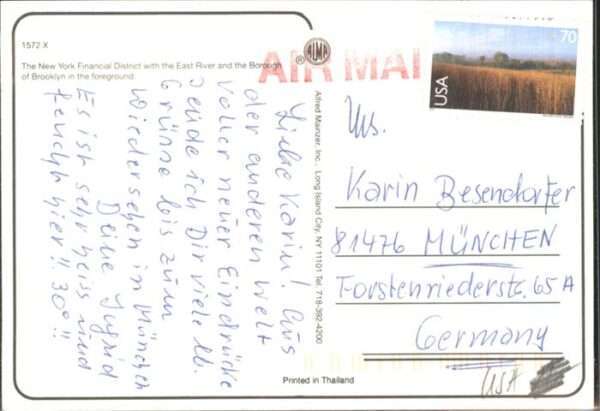 1572 X
The New York Financial District with the East River and the Borough
of Brooklyn in the foreground.
ALMA®
AIR MAI
70
USA
Liebe Karin! Aus
der anderen Welt
voller neuer Eindrücke
sende ich Dir viele lb.
Grüsse bis zum
Wiedersehen in München
Deine Ingrid
Es ist sehr heiss und
feucht hier!! 30°!!
Alfred Mainzer, Inc., Long Island City, NY 11101 Tel: 718-392-4200
Karin Besendorfer
81476 MÜNCHEN
Forstenriederstr. 65 A
Germany
USA
Printed in Thailand